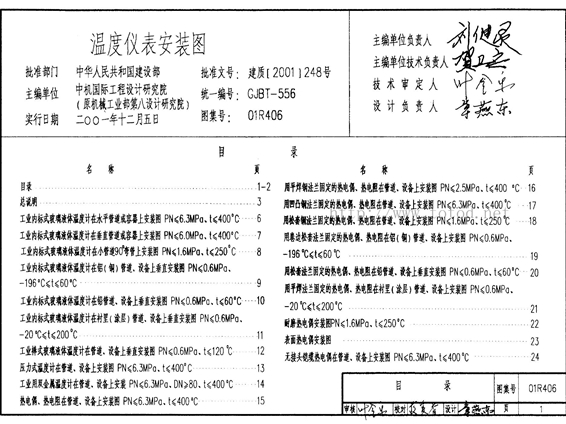 温度仪表安装图
批准部门 中华人民共和国建设部 批准文号: 建质[2001]248号
主编单位 中机国际工程设计研究院 统一编号: GJBT-556
(原机械工业部第八设计研究院)
实行日期 二○○一年十二月五日 图集号: 01R406
主编单位负责人
主编单位技术负责人
技术审定人 叶令
设计负责人 章燕东
目 录
名 称 页
目录 1-2
总说明 3
工业内标式玻璃液体温度计在水平管道或容器上安装图 PN≤6.3MPa、t≤400℃ 6
工业内标式玻璃液体温度计在垂直管道或容器上安装图 PN≤6.0MPa、t≤400℃ 7
工业内标式玻璃液体温度计在小管道90°弯管上安装图 PN≤1.6MPa、t≤250℃ 8
工业内标式玻璃液体温度计在铝(铜)管道、设备上垂直安装图 PN≤0.6MPa、
-196℃≤t≤60℃ 9
工业内标式玻璃液体温度计在铅管道、设备上垂直安装图 PN≤0.6MPa、t≤60℃ 10
工业内标式玻璃液体温度计在衬里(涂层)管道、设备上垂直安装图 PN≤0.6MPa、
-20℃≤t≤200℃ 11
工业棒式玻璃液体温度计在管道、设备上垂直安装图 PN≤0.6MPa、t≤120℃ 12
压力式温度计在管道、设备上安装图 PN≤6.3MPa、t≤400℃ 13
工业用双金属温度计在管道、设备上安装图 PN≤6.3MPa、DN>80、t≤400℃ 14
热电偶、热电阻在管道、设备上安装图 PN≤6.3MPa、t≤400℃ 15
名 称 页
用平焊钢法兰固定的热电偶、热电阻在管道、设备上安装图 PN≤2.5MPa、t≤400℃ 16
用凹凸钢法兰固定的热电偶、热电阻在管道、设备上安装图 PN≤6.3MPa、t≤400℃ 17
用松套钢法兰固定的热电偶、热电阻在管道、设备上安装图 PN≤1.6MPa、t≤250℃ 18
用卷边松套法兰固定的热电偶、热电阻在铝(铜)管道、设备上安装图 PN≤0.6MPa、
-196℃≤t≤60℃ 19
用松套法兰固定的热电偶、热电阻在铅管道、设备上安装图 PN≤0.6MPa、t≤60℃ 20
用平焊法兰固定的热电偶、热电阻在衬里(涂层)管道、设备上安装图 PN≤0.6MPa、
-20℃≤t≤200℃ 21
耐磨热电偶安装图PN≤1.6MPa、t≤250℃ 22
表面热电偶安装图 23
无接头铠缆热电偶在管道、设备上安装图 PN≤6.3MPa、t≤400℃ 24
目 录 图集号 01R406
审核 叶令 校对 设计 章燕东 页 1